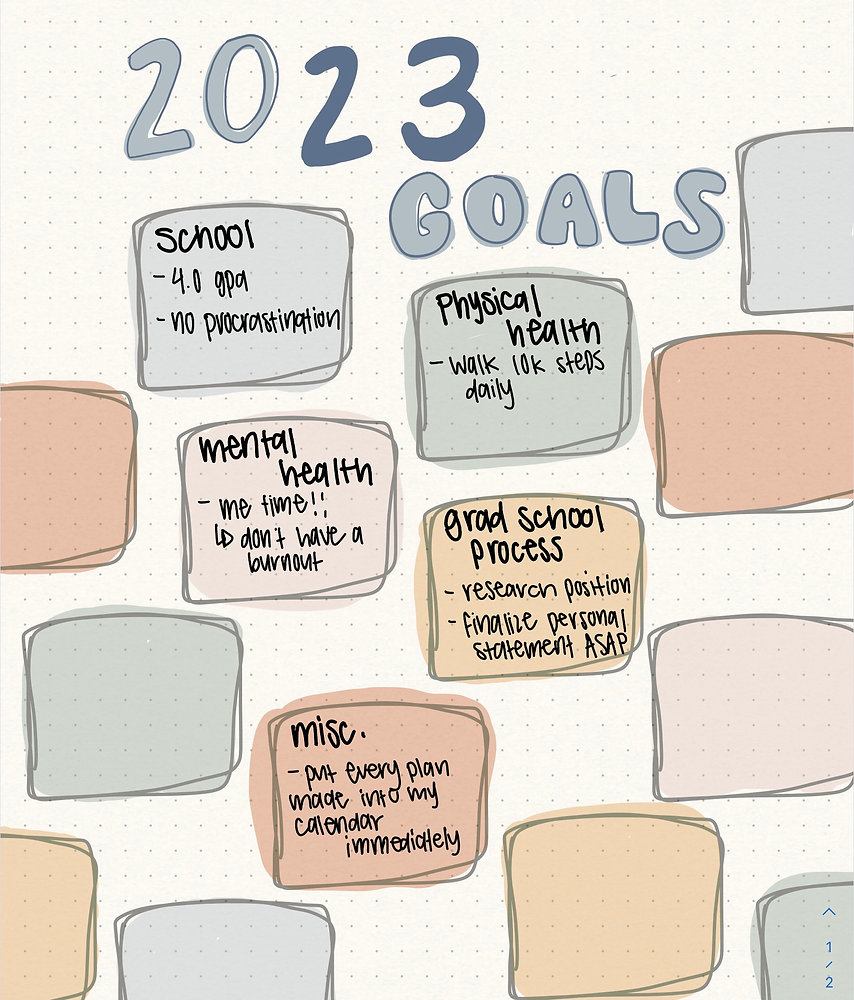 2023
GOALS
school
- 4.0 gpa
- no procrastination
Physical
health
- walk 10k steps
daily
mental
health
- me time!!
↳ don't have a
burnout
grad school
process
- research position
- finalize personal
statement ASAP
misc.
- put every plan
made into my
calendar
immediately
1
/
2